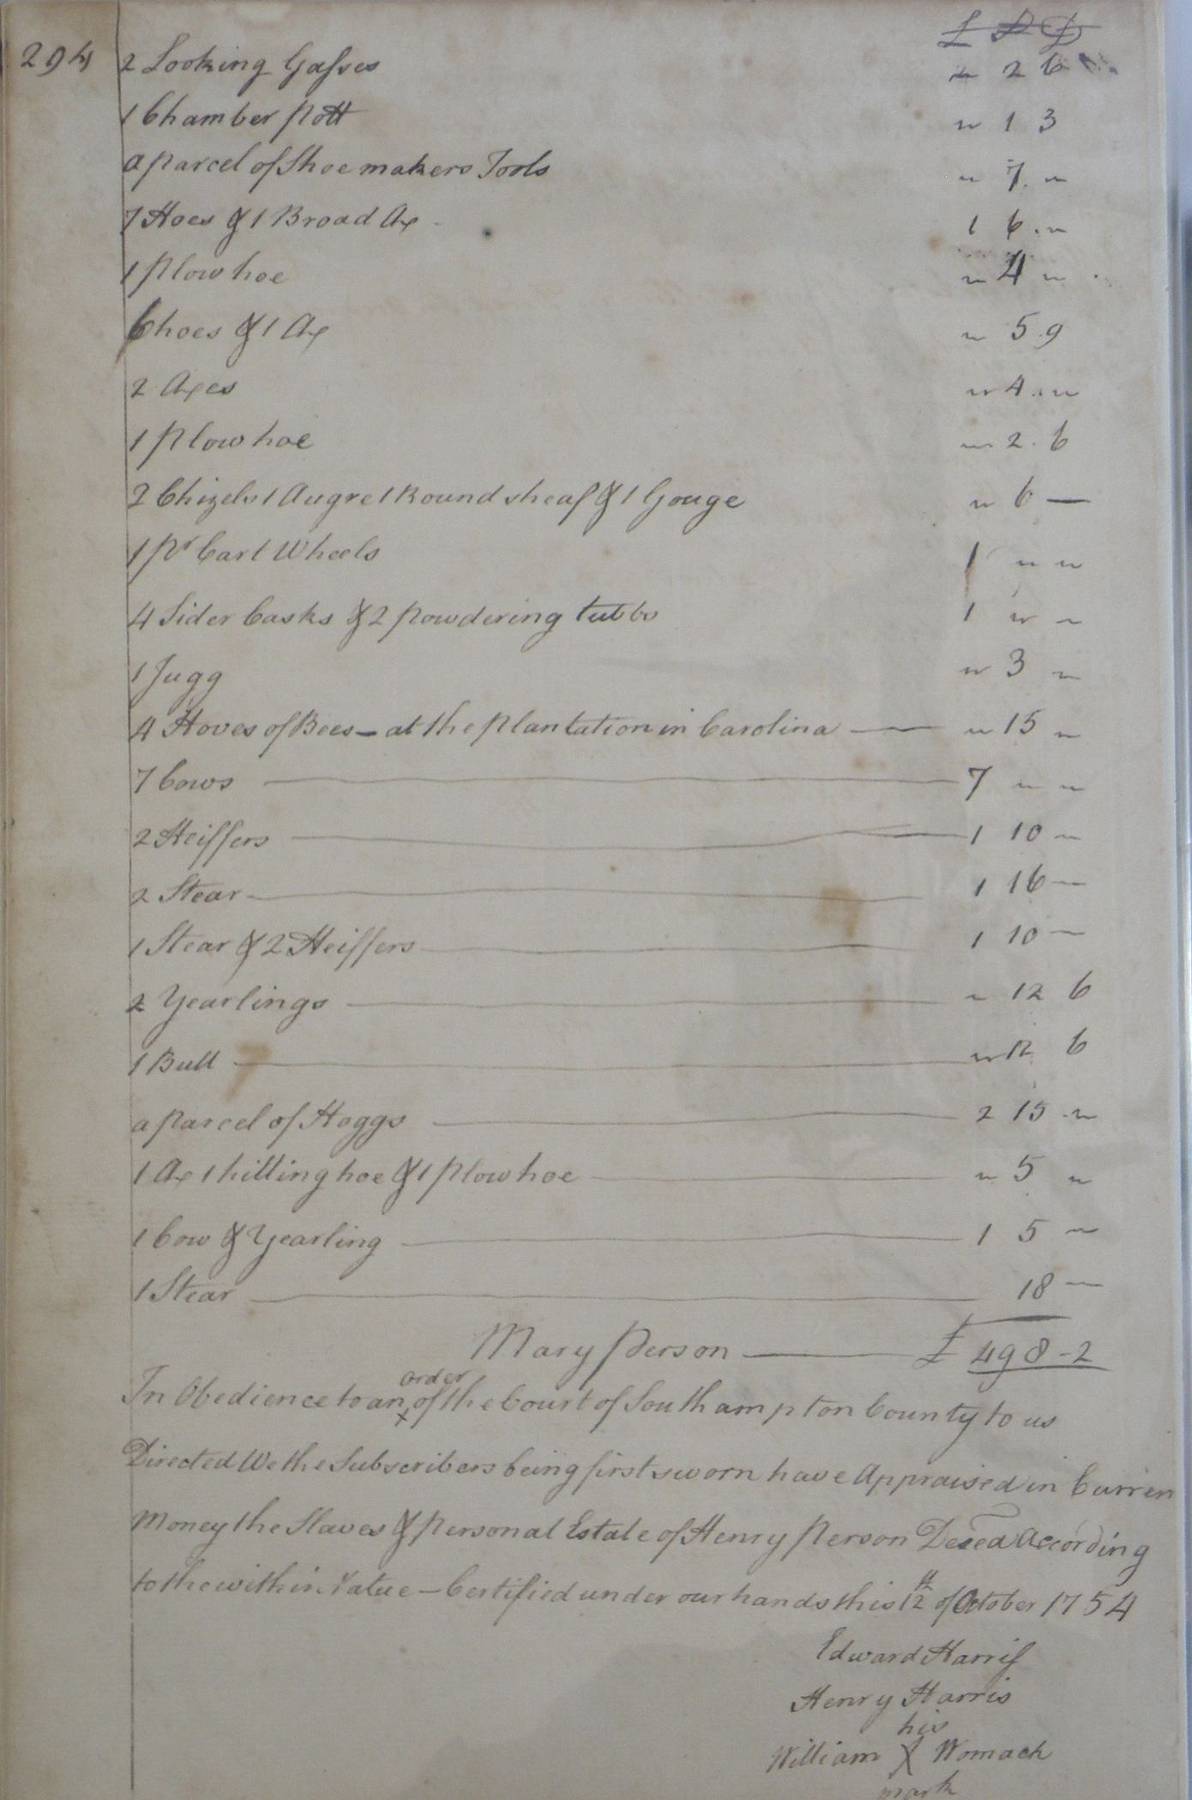 294
£ S D
2 Looking Gasses " 2 6
1 Chamber Pott " 1 3
a parcel of Shoemakers Tools " 7 "
7 Hoes & 1 Broad Ax 1 6 "
1 Plow hoe " 4 "
6 hoes & 1 Ax " 5 9
2 Axes " 4 "
1 Plow hoe " 2 6
2 Chizels 1 Augre 1 Round sheaf & 1 Gouge " 6 —
1 Pr Cart Wheels 1 " "
4 Sider Casks & 2 Powdering tubbs 1 " "
1 Jugg " 3 "
4 Hoves of Bees – at the Plantation in Carolina — " 15 "
7 Cows — 7 " "
2 Heiffers — 1 10 "
2 Stear — 1 16 —
1 Stear & 2 Heiffers — 1 10 —
2 Yearlings — " 12 6
1 Bull — " 12 6
a parcel of Hoggs — 2 15 "
1 Ax 1 hilling hoe & 1 Plow hoe — " 5 "
1 Cow & Yearling — 1 5 "
1 Stear — 18 —
Mary Person — £ 498 - 2
In Obedience to an order of the Court of Southampton County to us
Directed We the Subscribers being first sworn have Appraised in Curren
Money the Slaves & Personal Estate of Henry Person Deced According
to the within Value – Certified under our hands this 12th of October 1754
Edward Harris
Henry Harris
his
William X Womack
mark